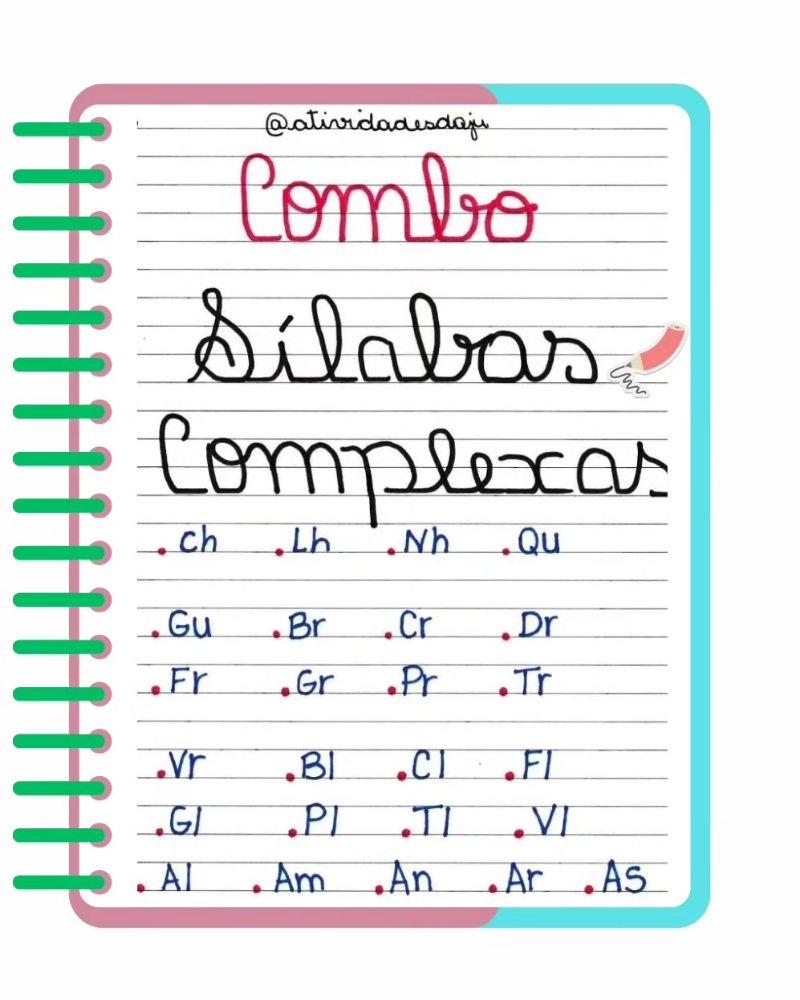 @atividadesdaju
Combo
Sílabas
Complexas
. ch . Lh . Nh . Qu
. Gu . Br . Cr . Dr
. Fr . Gr . Pr . Tr
. Vr . Bl . Cl . Fl
. Gl . Pl . Tl . Vl
. Al . Am . An . Ar . As